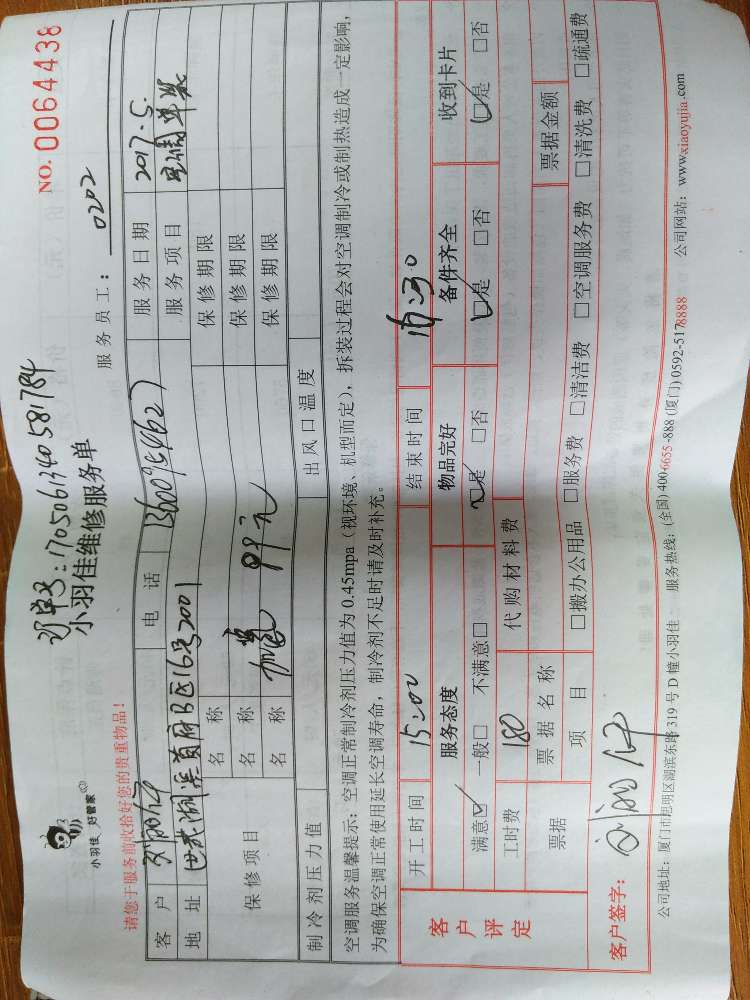 NO. 0064438
订单号:170506134058784
小羽佳 好管家
小羽佳维修服务单
服务员工: 0202
请您于服务前收拾好您的贵重物品!
客户 电话 服务日期 2017.5.
地址 世茂湖滨首府B区16号2001 服务项目
保修项目 名称 保修期限
名称 保修期限
名称 加 保修期限
制冷剂压力值 出风口温度
空调服务温馨提示:空调正常制冷剂压力值为0.45mpa(视环境、机型而定),拆装过程会对空调制冷或制热造成一定影响,
为确保空调正常使用延长空调寿命,制冷剂不足时请及时补充。
客户评定
开工时间 15:00 结束时间 16:30
服务态度 物品完好 备件齐全 收到卡片
满意☑ 一般□ 不满意□ ☑是 □否 ☑是 □否 ☑是 □否
工时费 180 代购材料费
票据 票据名称 票据金额
项目 □搬办公用品 □服务费 □清洁费 □空调服务费 □清洗费 □疏通费
客户签字:
公司地址:厦门市思明区湖滨东路319号D幢小羽佳 服务热线:(全国)4006655-888(厦门)0592-5178888 公司网站:www.xiaoyujia.com